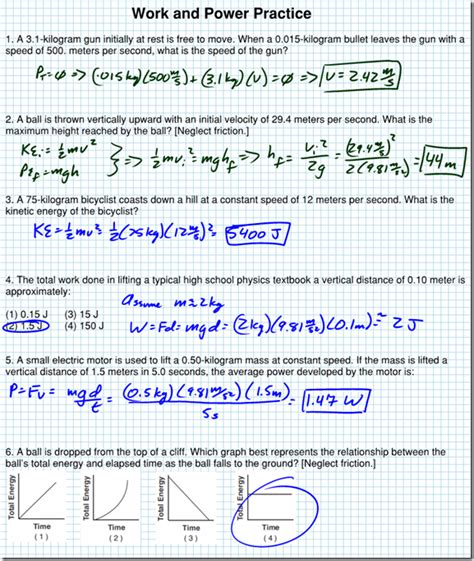 Work and Power Practice
1. A 3.1-kilogram gun initially at rest is free to move. When a 0.015-kilogram bullet leaves the gun with a
speed of 500. meters per second, what is the speed of the gun?
P_T=∅ => (.015kg)(500 m/s)+(3.1kg)(v)=∅ => v=2.42 m/s
2. A ball is thrown vertically upward with an initial velocity of 29.4 meters per second. What is the
maximum height reached by the ball? [Neglect friction.]
KE_i=½mv²
PE_f=mgh
} => ½mv_i²=mgh_f => h_f = v_i²/2g = (29.4 m/s)²/2(9.81 m/s²) = 44m
3. A 75-kilogram bicyclist coasts down a hill at a constant speed of 12 meters per second. What is the
kinetic energy of the bicyclist?
KE=½mv²=½(75kg)(12 m/s)²=5400 J
4. The total work done in lifting a typical high school physics textbook a vertical distance of 0.10 meter is
approximately:
assume m≈2kg
(1) 0.15 J (3) 15 J
(2) 1.5 J (4) 150 J
W=Fd=mgd=(2kg)(9.81 m/s²)(0.1m)≈2J
5. A small electric motor is used to lift a 0.50-kilogram mass at constant speed. If the mass is lifted a
vertical distance of 1.5 meters in 5.0 seconds, the average power developed by the motor is:
P=Fv=mgd/t=(0.5kg)(9.81 m/s²)(1.5m)/5s=1.47 W
6. A ball is dropped from the top of a cliff. Which graph best represents the relationship between the
ball's total energy and elapsed time as the ball falls to the ground? [Neglect friction.]
Total Energy Total Energy Total Energy Total Energy
Time Time Time Time
( 1 ) ( 2 ) ( 3 ) ( 4 )